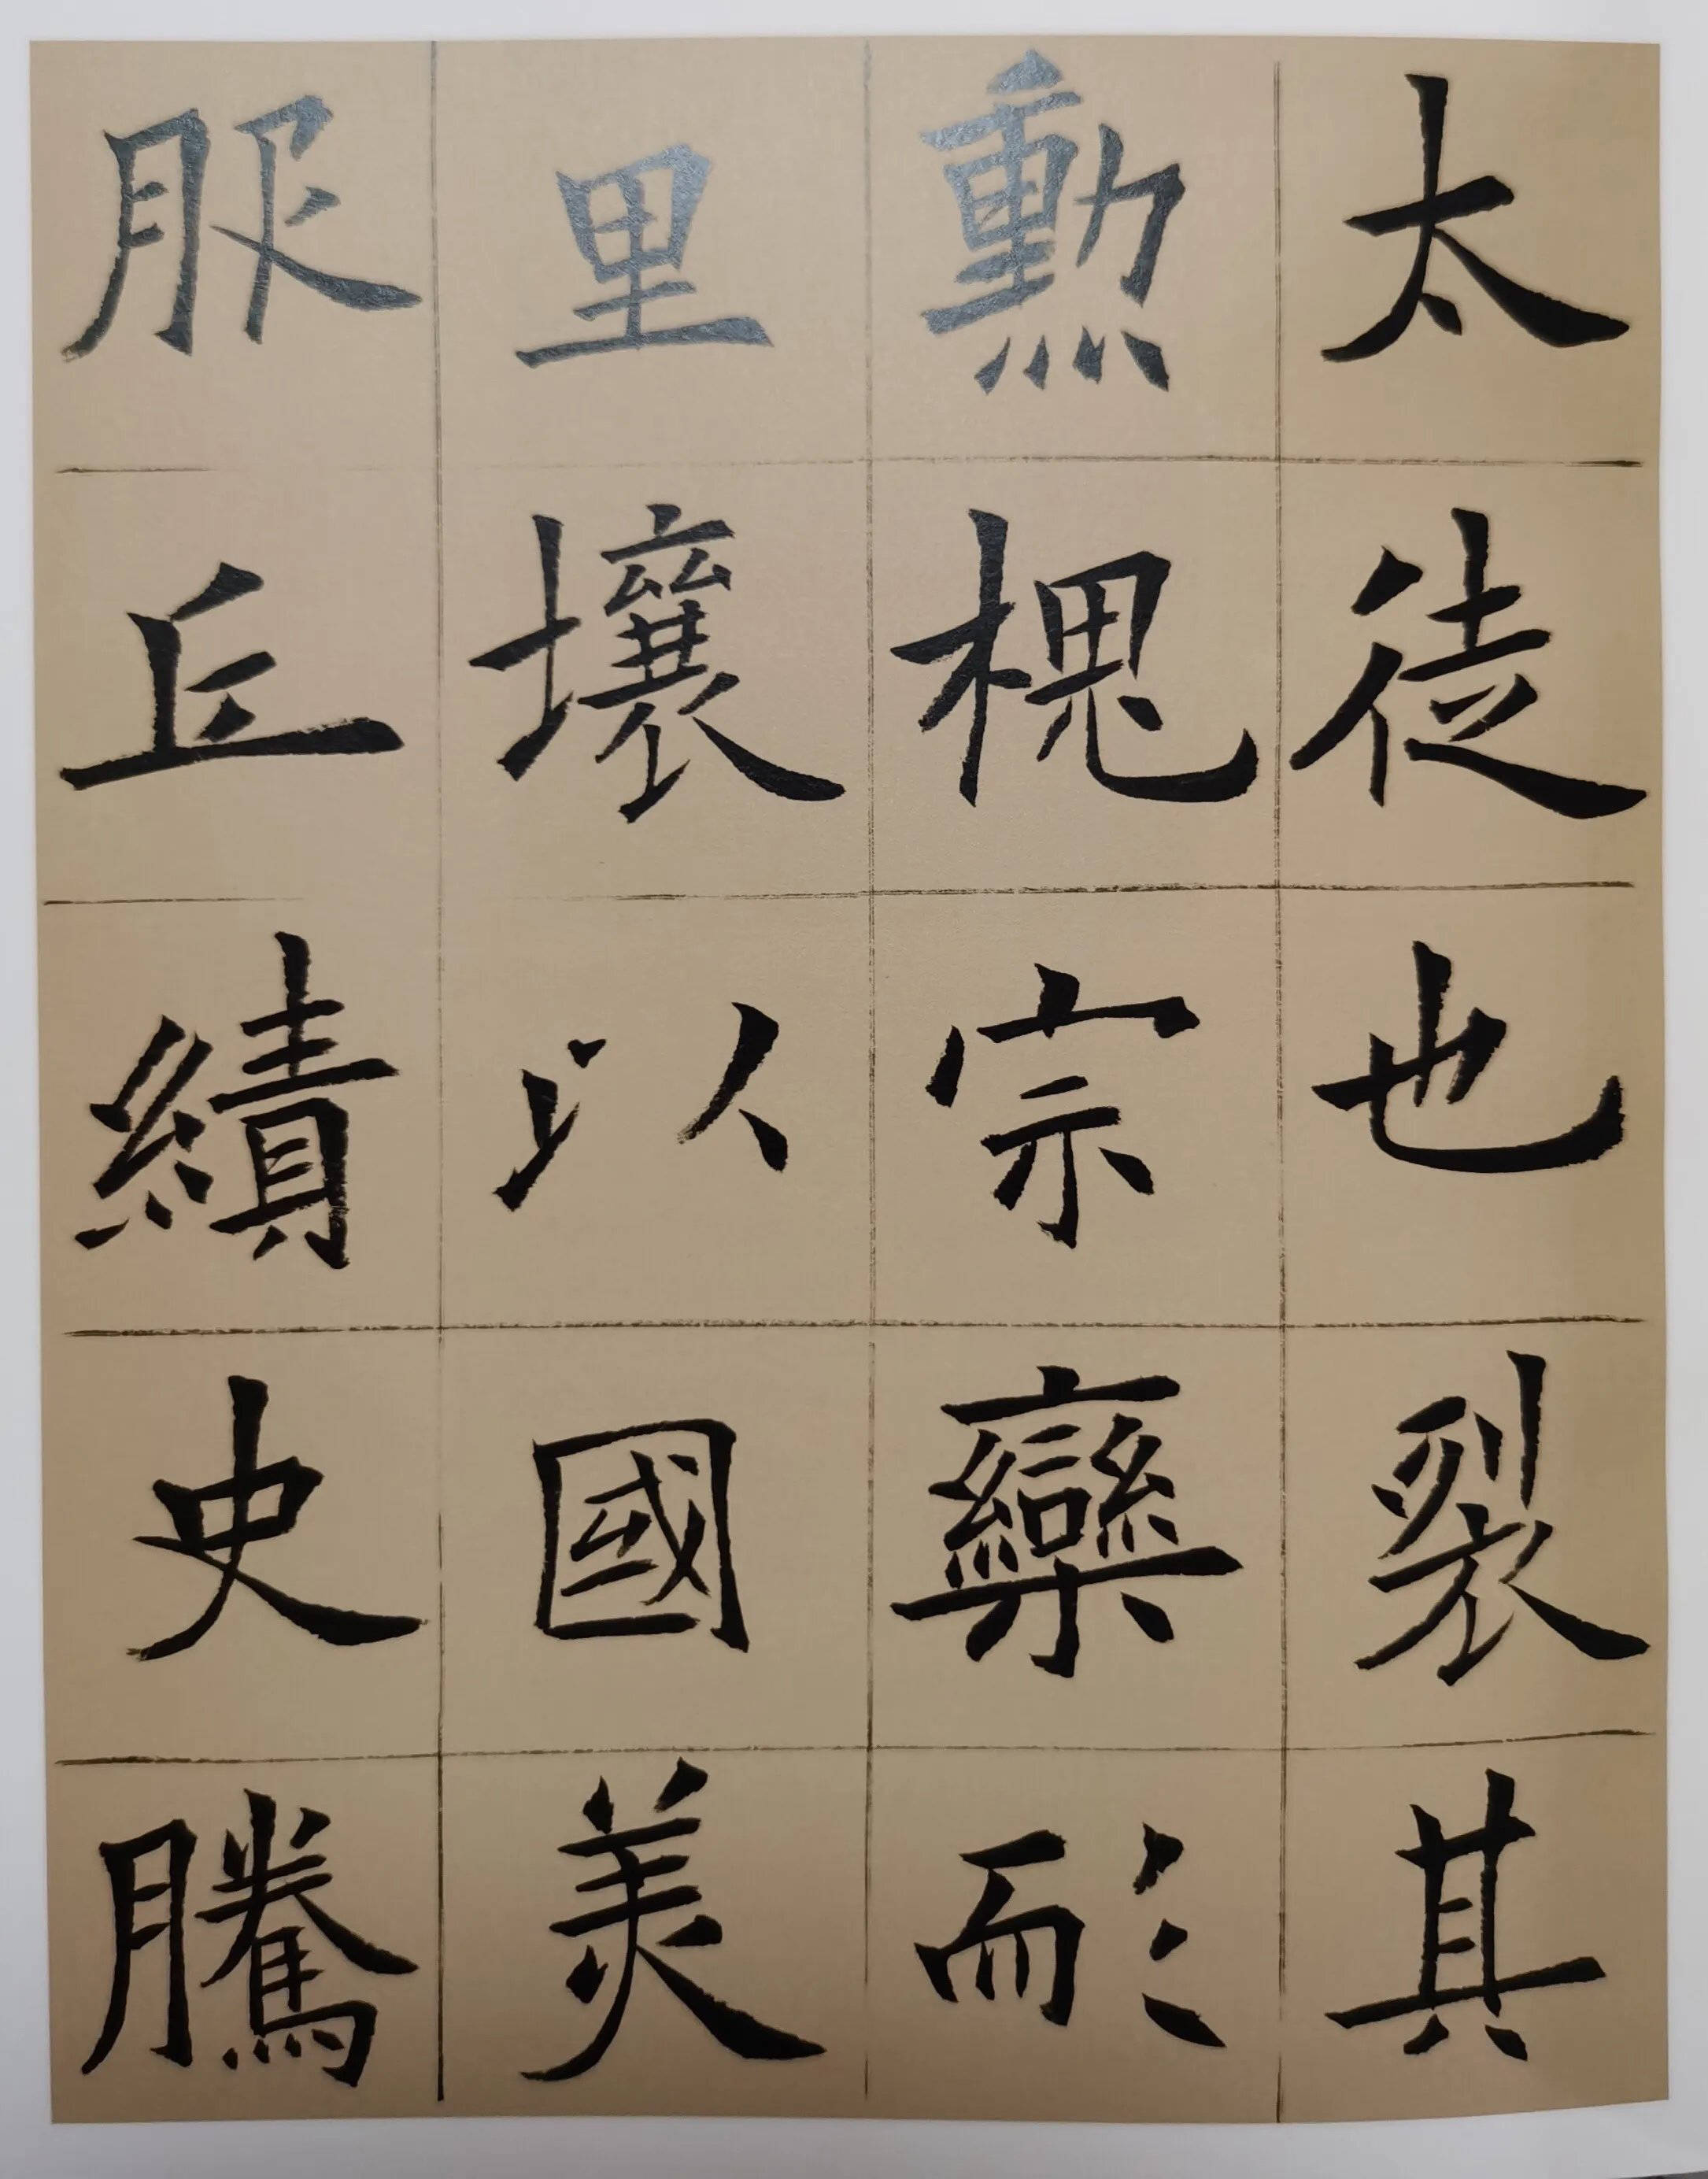 太徒也裂其
勳槐宗欒耏
里壤以國美
服丘績史騰